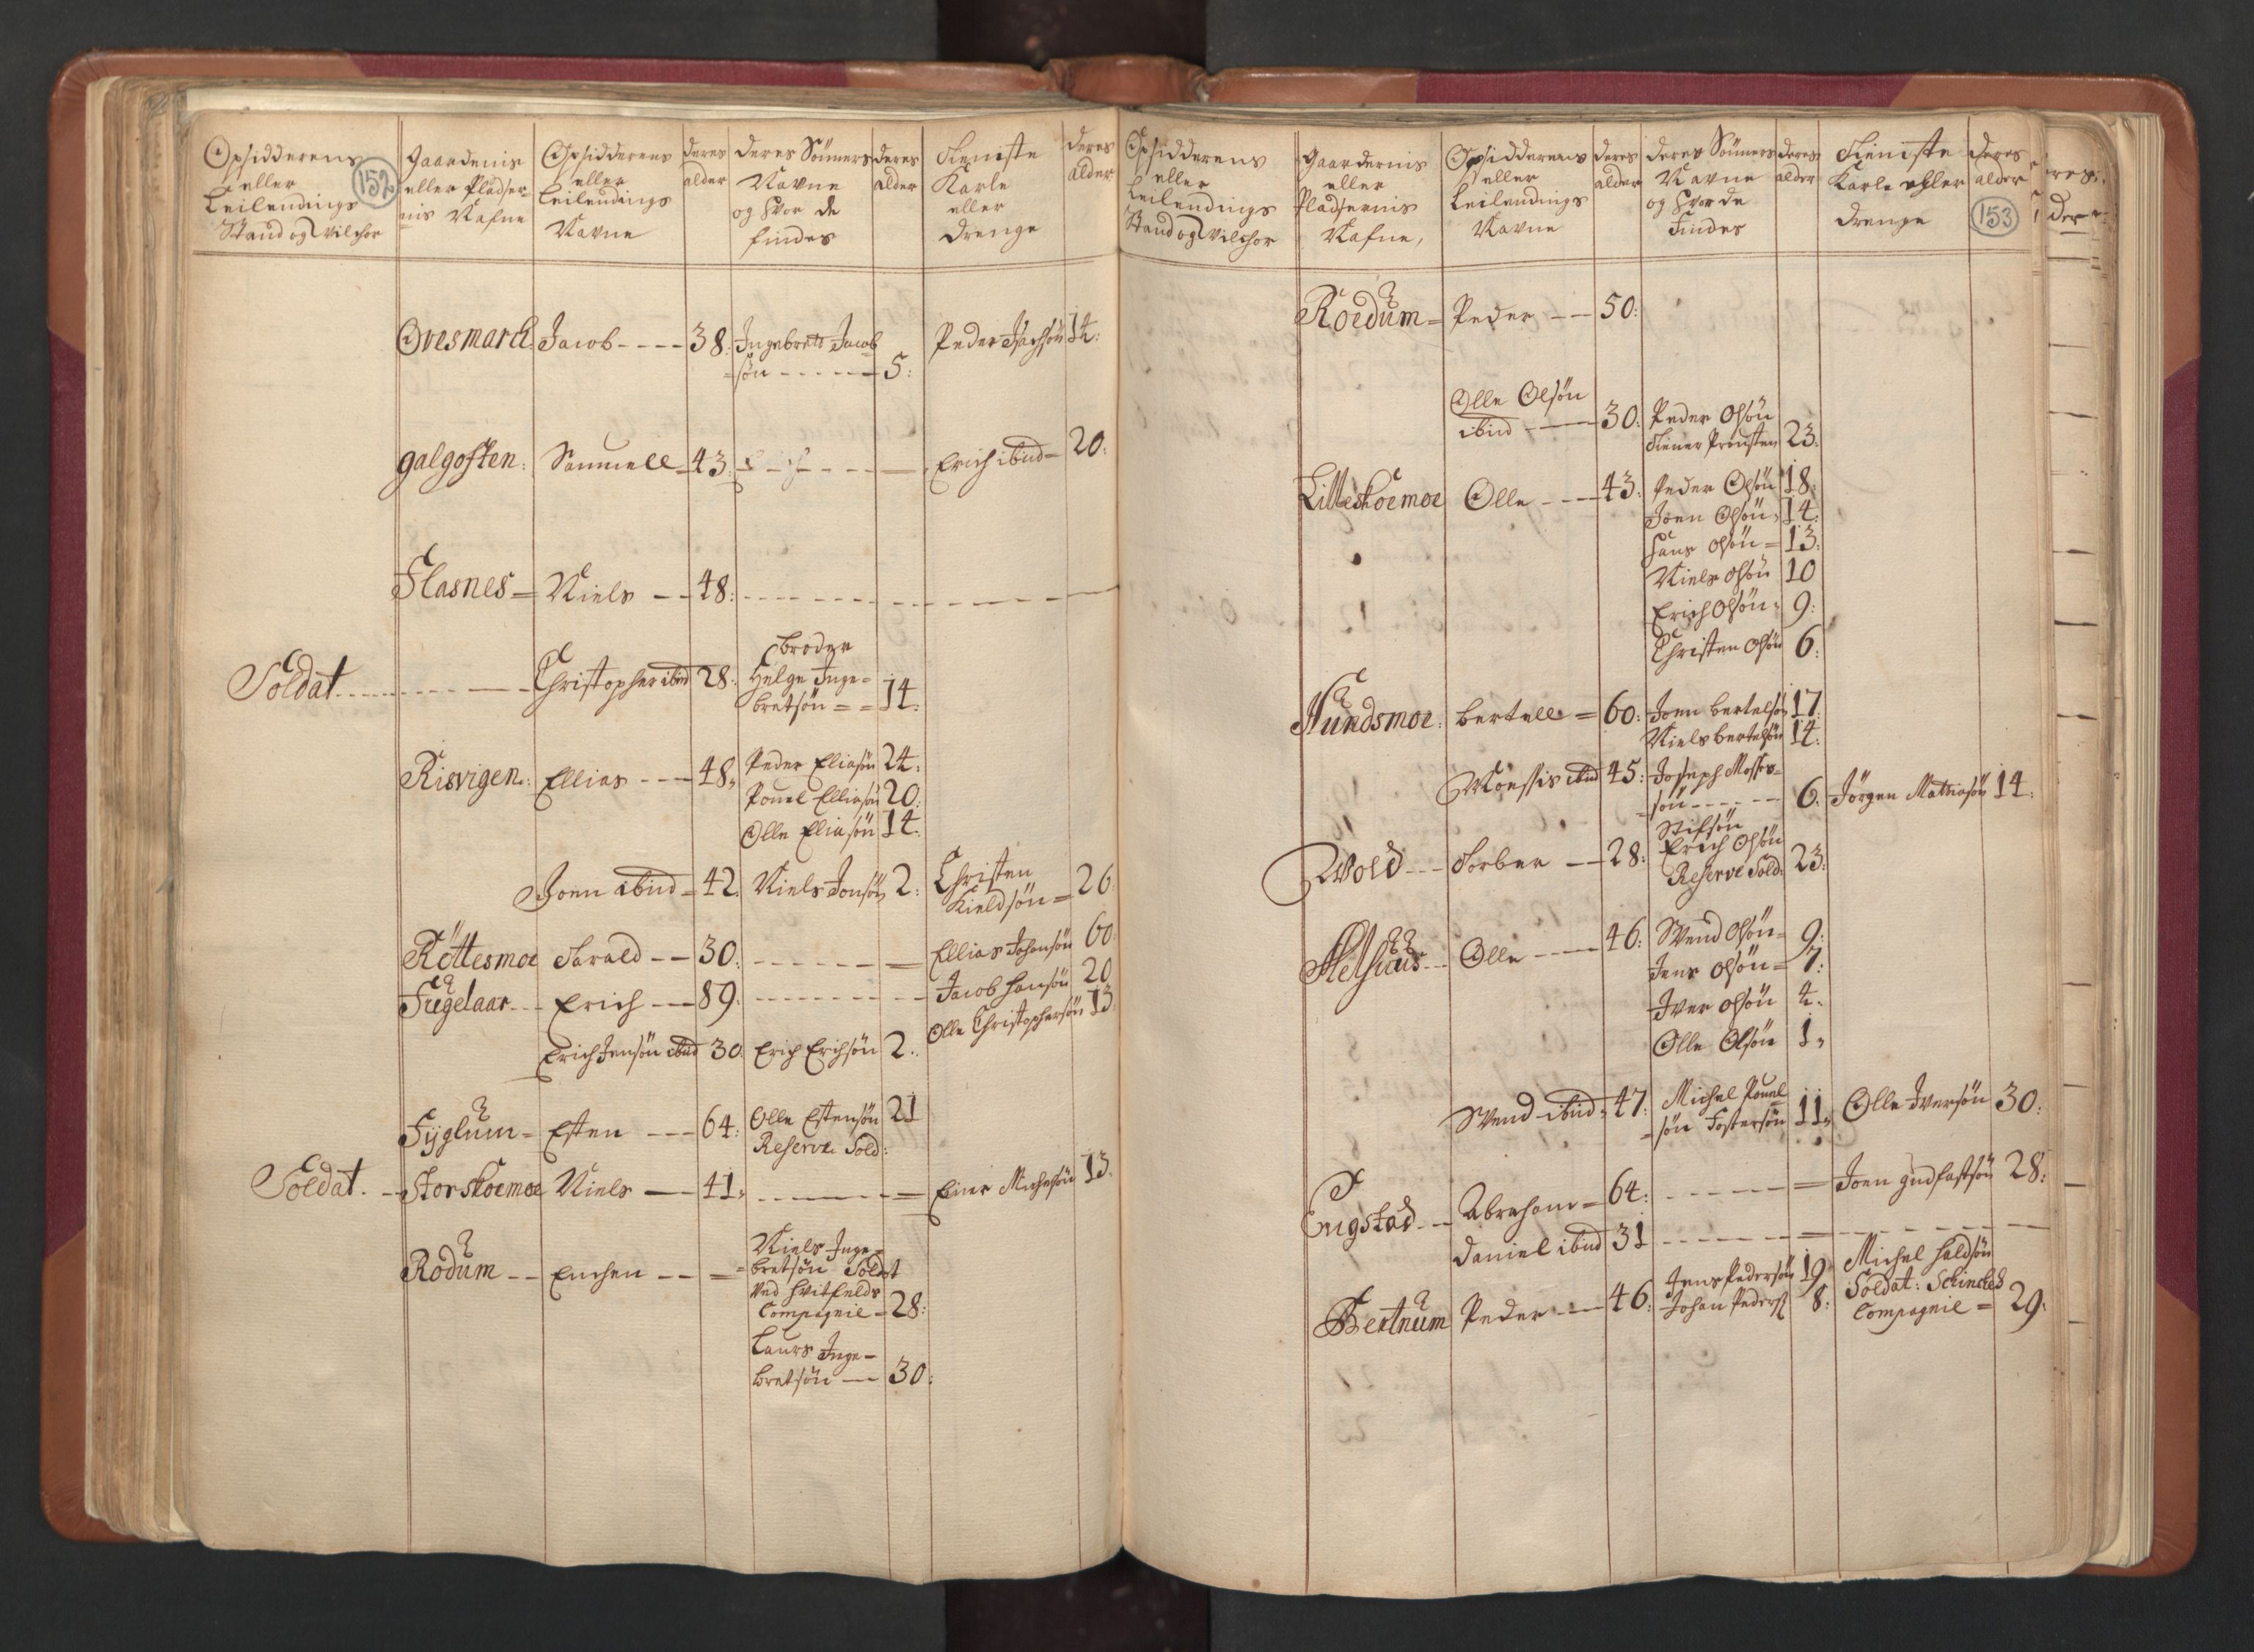 Opsidderens eller Leilendings Stand og Vilchor
152
Gaardenis eller Pladser=nis Nafne
Opsidderens eller Leilendings Navne
deres alder
deres Sönners Navne og hvor de findes
deres alder
Tieniste Karle eller Drenge
deres alder
Ovesmarck Jacob - - - - 38: Ingebret Jacob
=sön - - - - - 5:
Peder Isachsön 14:
galgosten: Samuell 43: - - - - Erich ibid= 20:
Flasnes = Niels - - 48: - - - - - -
Soldat - - - - - Christopher ibid 28: broder
Helge Inge=
bretsön = = 14:
Risvigen: Ellias - - - 48, Peder Eliasön 24:
Pouel Elliasön 20:
Olle Eliasön 14:
Joen ibid = 42. Niels Jonsön 2: Christen
Kieldsön = 26
Röttesmoe Harald - - 30: - - - - - Ellias Johansön 60
Fugelaar - - Erich - - 89: - - - - - Jacob Hansön 20
Olle Christophersön 13
Erich Jensön ibid 30: Erich Erichsön 2:
Fyglum = Esten - - - 64: Olle Estensön 21
Reserve Sold:
Soldat. - Storskoemoe Niels - 41, - - - - = Einer Michelsön 13.
Rödum - - Enchen - - = Niels Inge=
=bretsön Soldat
ved Hvitfelds
Compagnie = 28:
Laurs Inge=
bretsön - - 30:
Opsidderens eller Leilendings Stand og Vilchor
Gaardernis eller Pladsernis Nafne,
Opsidderens eller Leilendings Navne
deres alder
deres Sönners Navne og hvor de Findes
deres alder
Tieniste Karle eller Drenge
deres alder
153
Roedum = Peder - - 50:
Olle Olsön
ibid - - - 30: Peder Olsön
tiener Præsten 23:
Litleskoemoe Olle - - - 43: Peder Olsön 18:
Joen Olsön, 14:
Hans Olsön = 13:
Niels Olsön 10
Erich Olsön, 9:
Christen Olsön 6:
Hundsmoe: bertell = 60: Joen bertelsön 17:
Niels bertelsön 14:
Moessis ibid 45: Joseph Moses=
=sön - - - - 6. Jörgen Mathiasön 14:
Wold - - - Torber - - 28: Stifsön
Erich Olsön
Reserve Sold: 23:
Helhuus - - Olle - - - 46: Svend Olsön = 9:
Jens Olsön = 7:
Iver Olsön 4.
Olle Olsön 1,
Svend ibid, 47: Michel Pouel
=sön Fostersön 11, Olle Iversön 30:
Engstad - - Abraham = 64: - - - - = Joen Gudfastsön 28:
Daniel ibid 31 - - - - - -
Bertnum Peder - - 46: Jens Pedersön 19,
Johan Peders: 8:
Michel Haldsön
Soldat: Schinckels
Compagnie = 29: